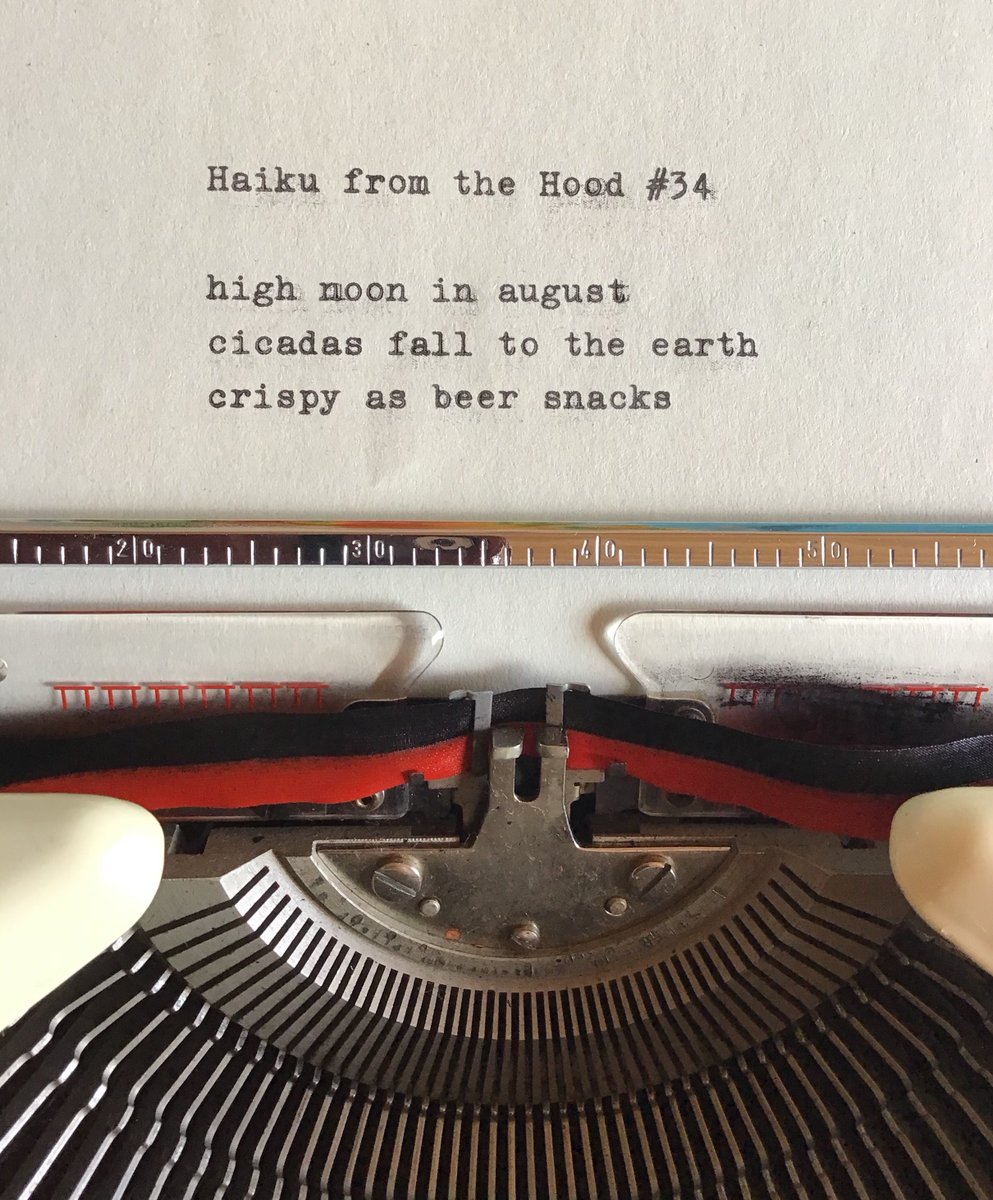 Haiku from the Hood #34
high noon in august
cicadas fall to the earth
crispy as beer snacks
20 30 40 50